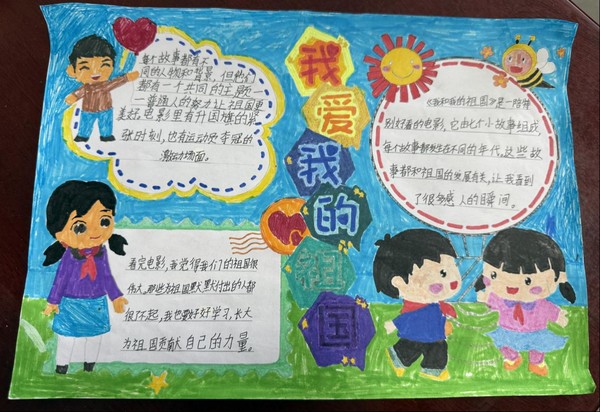 每个故事都有不
同的人物和背景,但他们
都有一个共同的主题一
一普通人的努力让祖国更
美好,电影里有升国旗的紧
张时刻,也有运动员夺冠的
激动场面。
我
爱
我
的
祖
国
《我和我的祖国》是一部特
别好看的电影,它由七个小故事组成
每个故事都发生在不同的年代,这些故
事都和祖国的发展有关,让我看到
了很多感人的瞬间。
看完电影,我觉得我们的祖国很
伟大,那些为祖国默默付出的人都
很了不起,我也要好好学习,长大
为祖国贡献自己的力量。